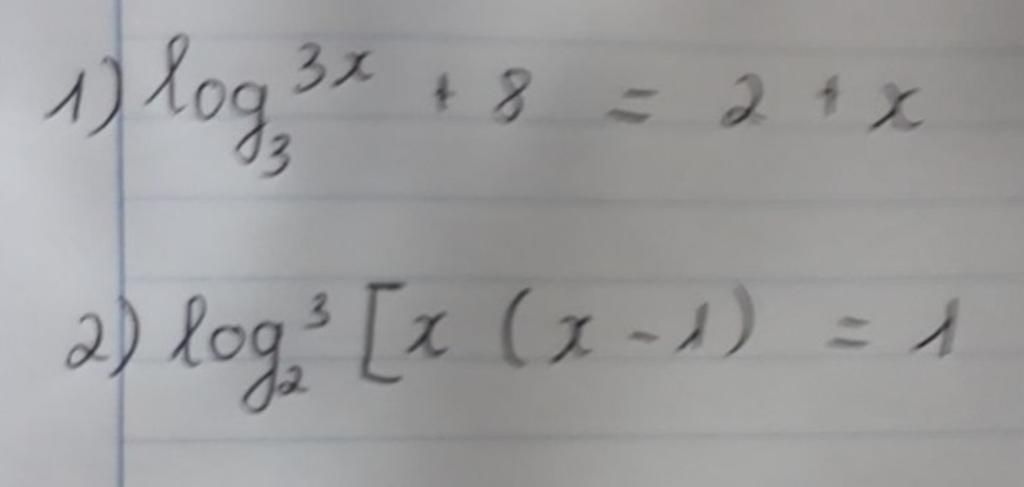 1) log₃ ³ˣ + 8 = 2 + x
2) log₂³ [x (x - 1) = 1